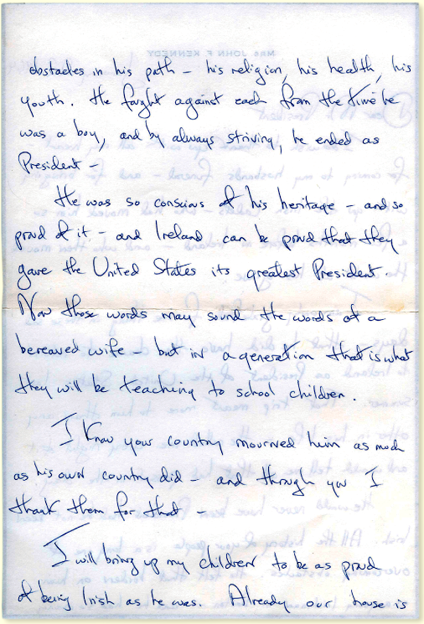 obstacles in his path – his religion, his health, his
youth. He fought against each from the time he
was a boy, and by always striving, he ended as
President –
He was so conscious of his heritage – and so
proud of it – and Ireland can be proud that they
gave the United States its greatest President.
Now those words may sound the words of a
bereaved wife – but in a generation that is what
they will be teaching to school children.
I know your country mourned him as much
as his own country did – and through you I
thank them for that –
I will bring up my children to be as proud
of being Irish as he was. Already our house is